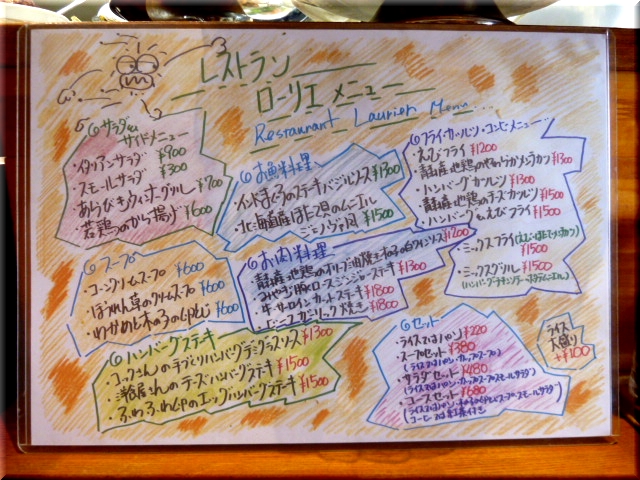 レストラン
ローリエ メニュー
Restaurant Laurier Menu...
サラダ&
サイドメニュー
・イタリアンサラダ ¥900
・スモールサラダ ¥300
・あらびきウィンナーグリル ¥700
・若鶏のから揚げ ¥600
お魚料理
・インドまぐろのステーキバジルソース ¥1300
・北海道産ほたて貝のムニエル
ジェノヴァ風 ¥1500
フライ・カツレツ・コンビメニュー
・えびフライ ¥1200
・青森産地鶏のやわらかメンチカツ ¥1300
・ハンバーグカツレツ ¥1300
・青森産地鶏のチーズカツレツ ¥1500
・ハンバーグ&えびフライ ¥1500
・ミックスフライ
¥1500
・ミックスグリル ¥1500
スープ
・コーンクリームスープ ¥600
・ほうれん草のクリームスープ ¥600
・わかめと木の子の ¥600
お肉料理
¥1200
ステーキ ¥1300
・牛サーロインカットステーキ ¥1800
ガーリック焼き ¥1800
ハンバーグステーキ
・コックさんの手づくりハンバーグデミグラスソース ¥1300
・洋食屋さんのチーズハンバーグステーキ ¥1500
・ふわふわ エッグハンバーグステーキ ¥1500
セット
・ライスまたはパン ¥220
・スープセット ¥380
(ライスまたはパン・カップスープ)
・サラダセット ¥480
(ライスまたはパン・カップスープ・スモールサラダ)
・コースセット ¥680
ライス
大盛り
+¥100